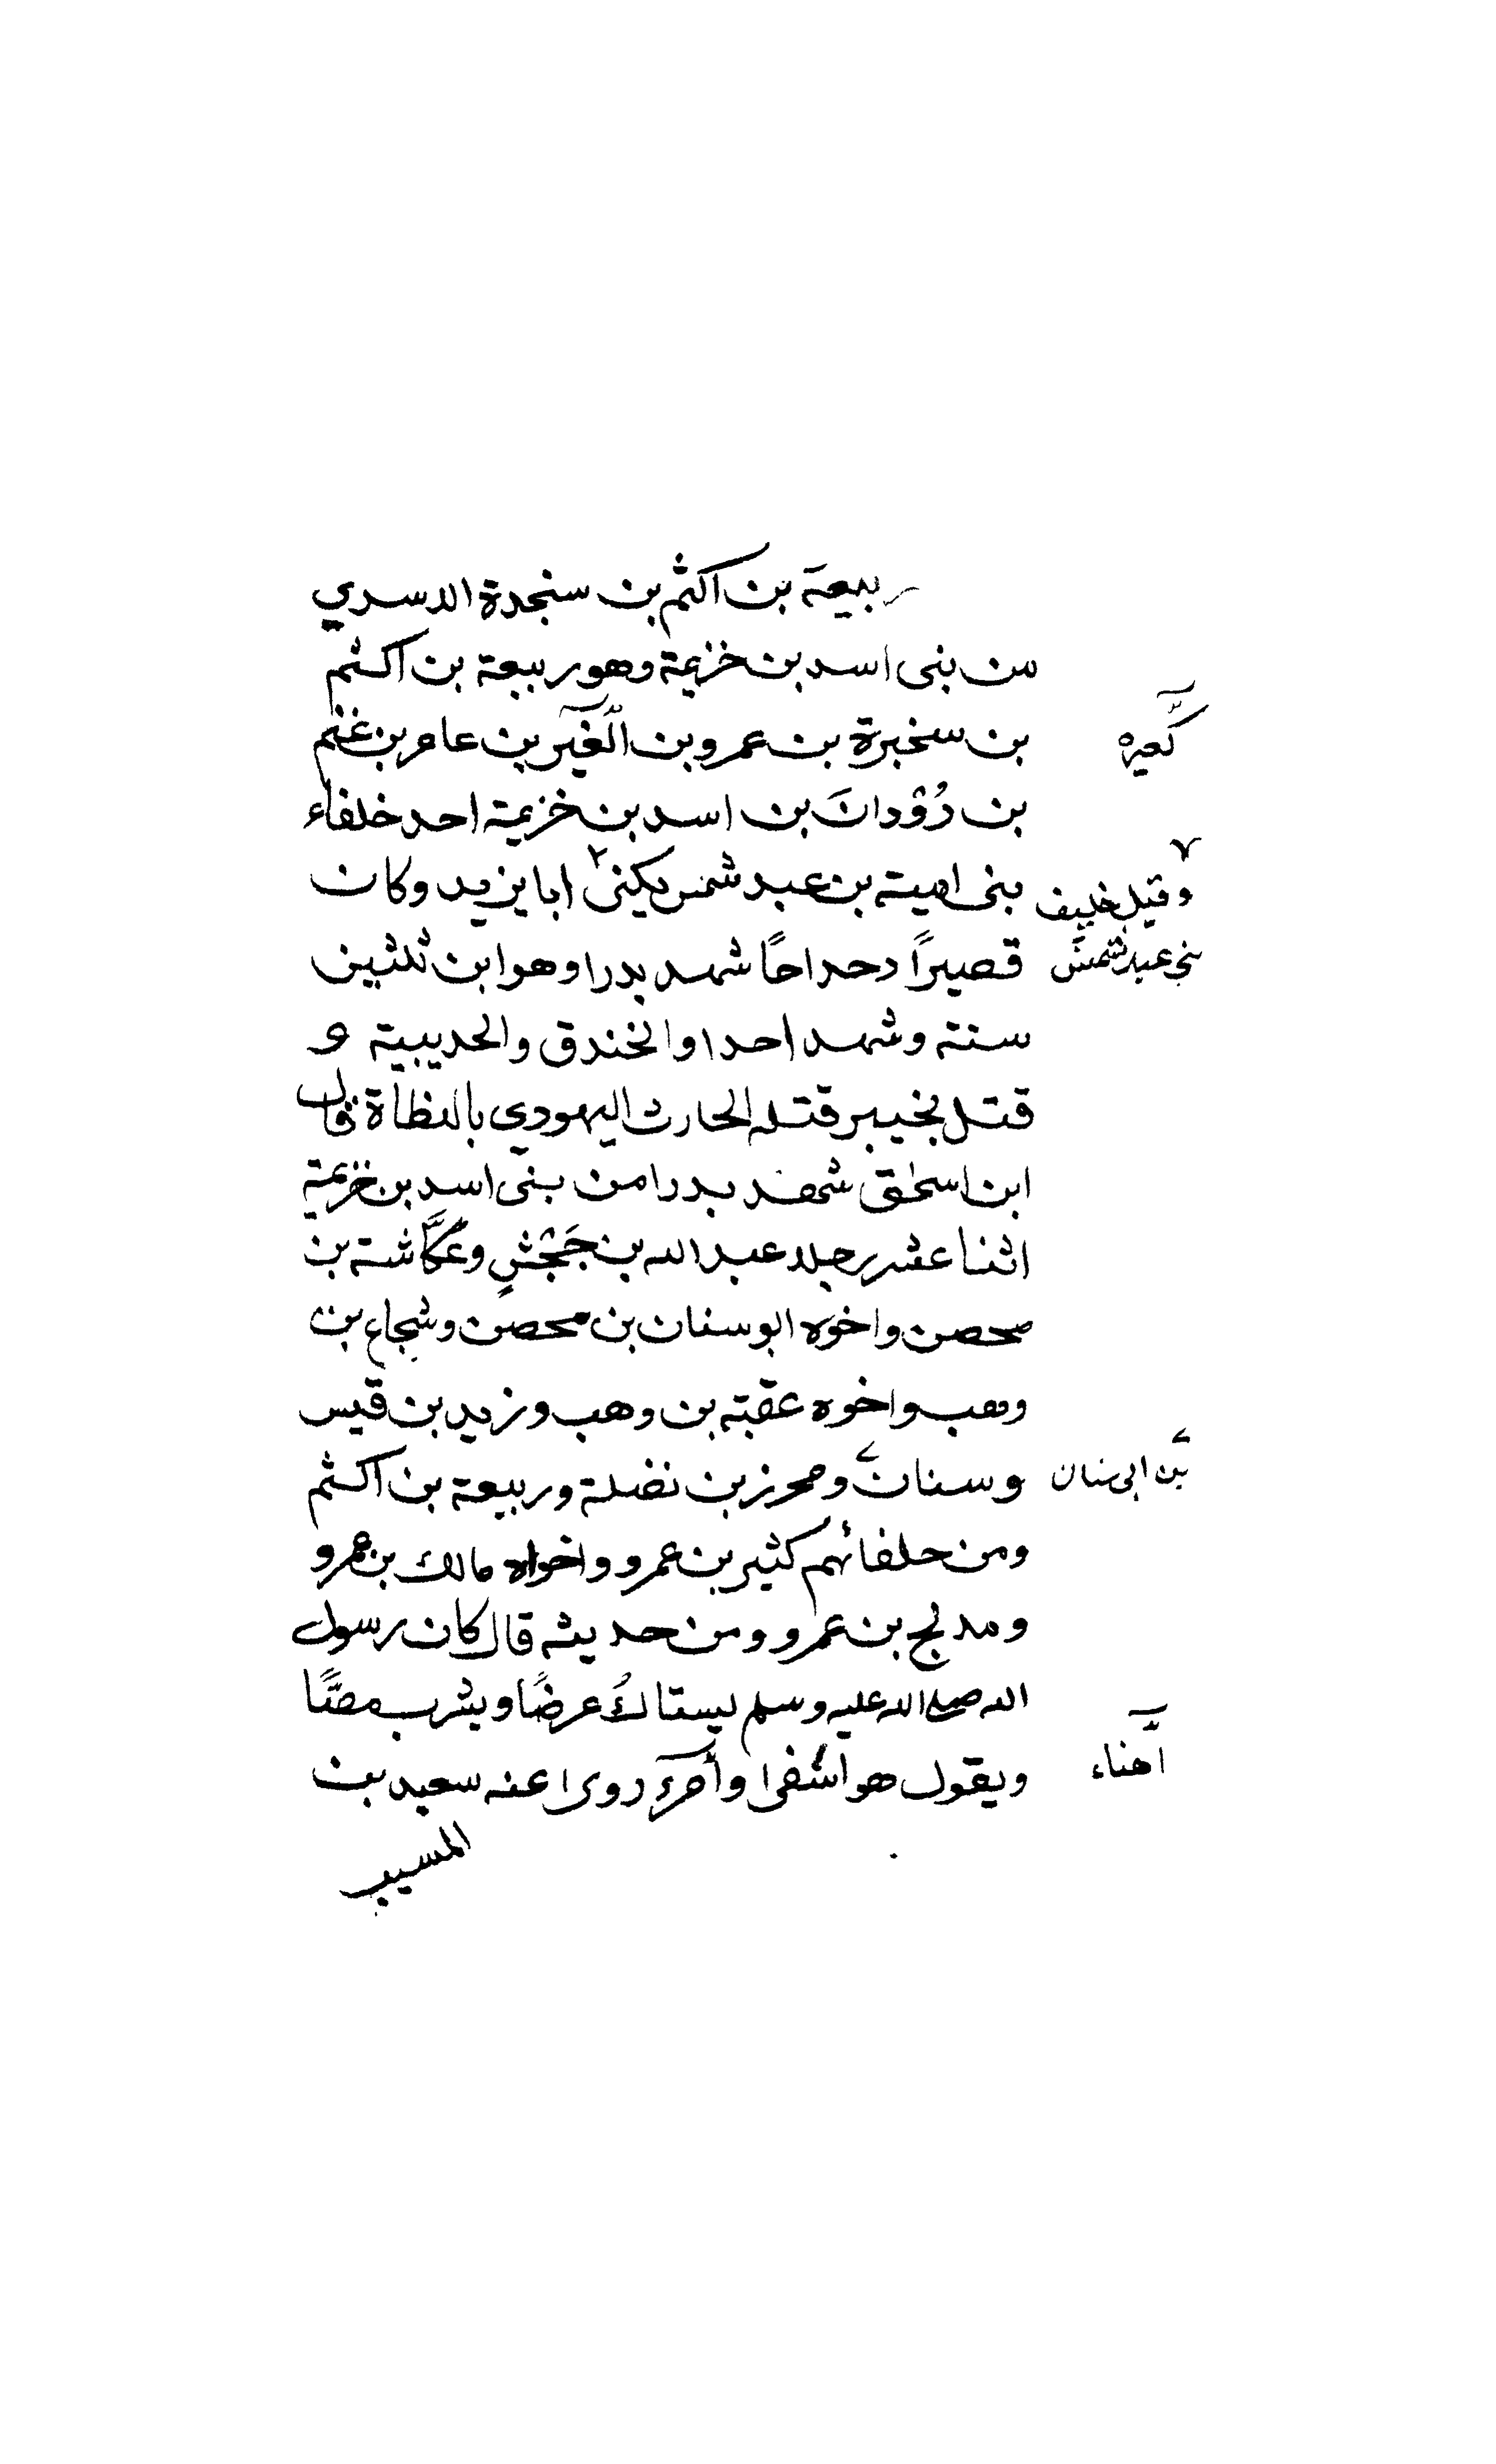 ربيعة بن اكثم بن سنجدة الاسدي
من بنى اسد بن خزيمة وهو ربيعة بن اكثم
بن سخبرة بن عمرو بن الغيز بن عامر بن غنم
بن دُوْدانَ بن اسد بن خزيمة احد خلفاء
بنى امية بن عبد شمس يكنى ابا يزيد وكان
وقيل خليف
بنى عبد شمس
قصيرًا دحداحًا شهد بدرا وهو ابن ثلثين
سنة وشهد احدا والخندق والحديبية و
قتل بخيبر قتله الحارث اليهودي بالنظاة قال
ابن اسحٰق شهد بدرا من بنى اسد بن خزيمة
اثنا عشر رجلا عبد الله بن جَحْشٍ وعُكَّاشة بن
محصن واخوه ابو سنان بن محصن وشجاع بن
وهب واخوه عقبة بن وهب وزيد بن قيس
وسنان ومحرز بن نضلة وربيعة بن اكثم
بن ابى سنان
ومن حلفائهم كثير بن عمرو واخواه مالك بن عمرو
ومدلج بن عمرو ومن حديثه قال كان رسول
الله صلى الله عليه وسلم يستاكُ عرضًا ويشرب مصًّا
ويقول هو اشفى وأمرء روى عنه سعيد بن
اهناء
المسيب